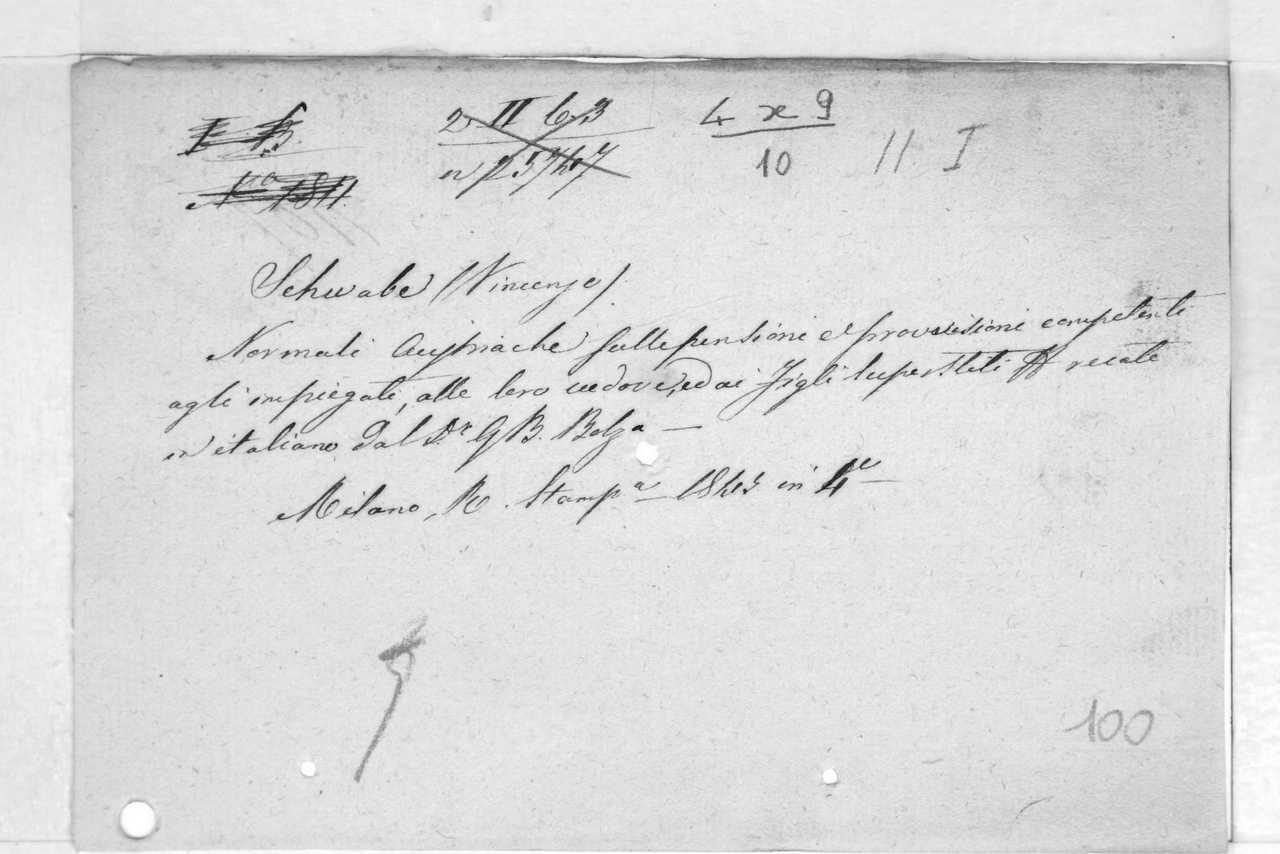 E B.
2 II 6 3
4 x 9
10
11 I
Nro 1811.
Schwabe (Vincenzo).
Normali Austriache sulle pensioni e provvisioni competenti
agli impiegati, alle loro vedove, ed ai figli superstiti recate
in italiano dal Dr. G B. Bolza —
Milano, R. Stampa 1843 in 4to
100